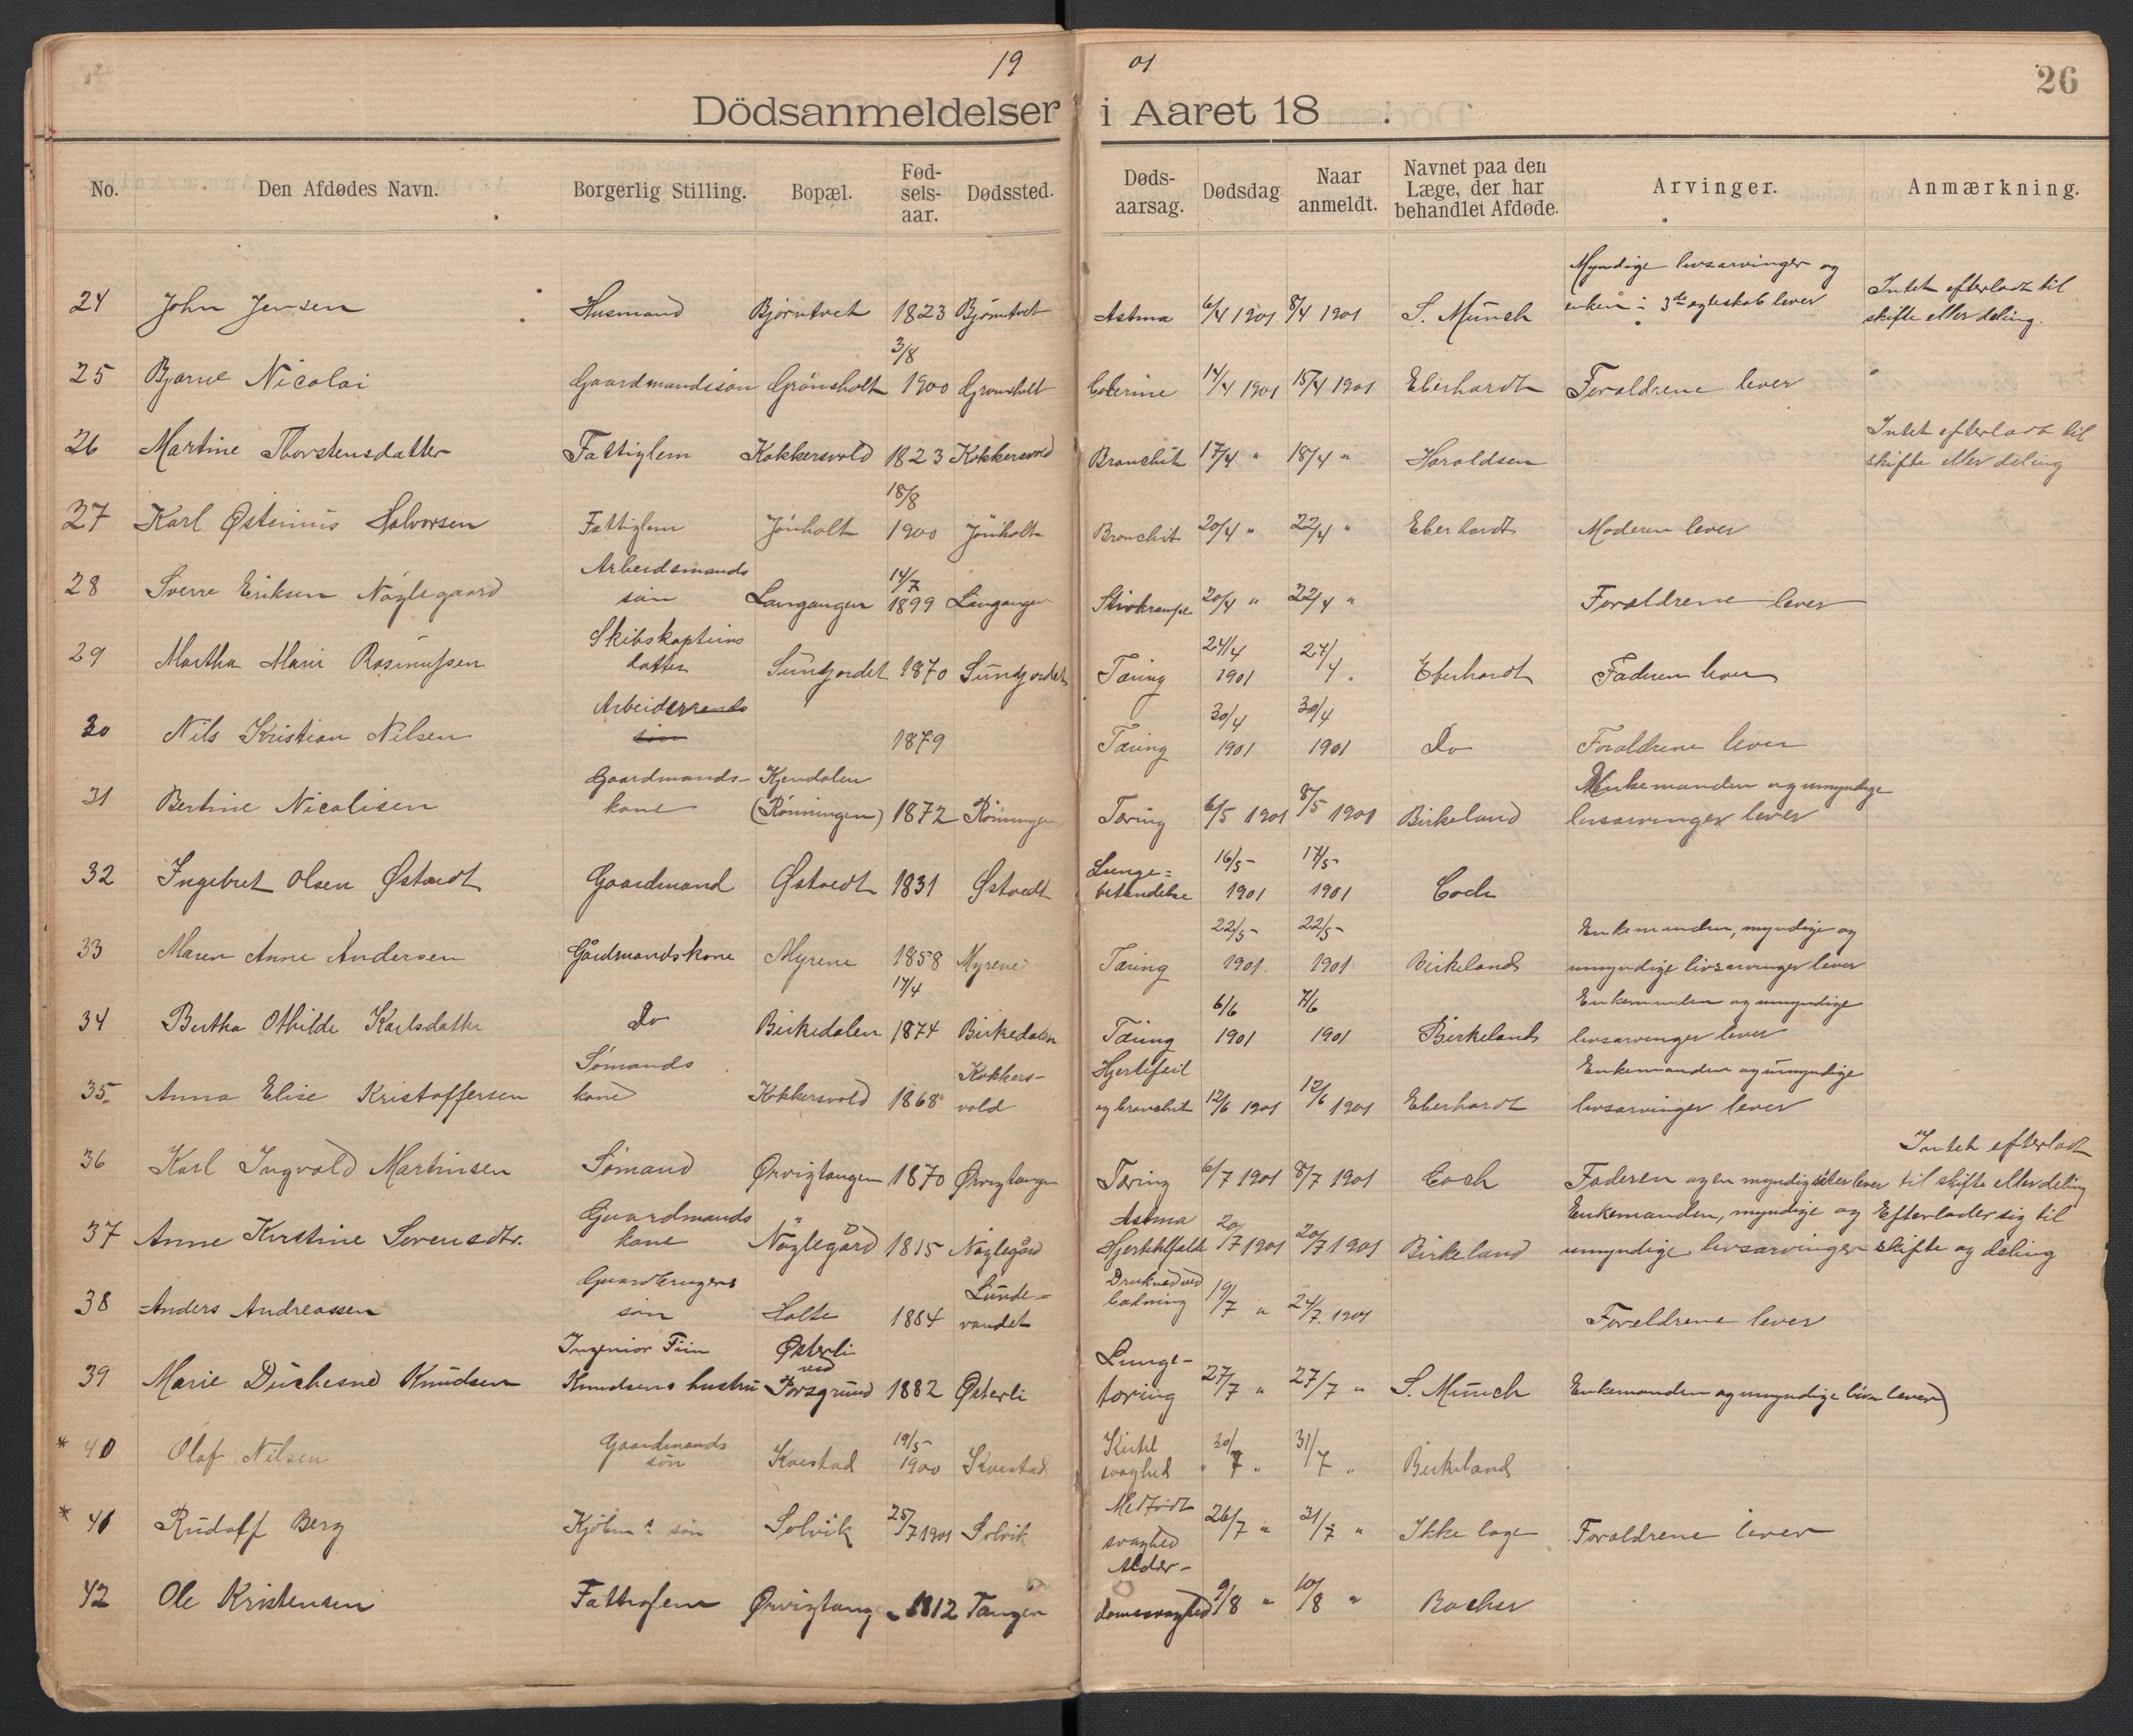 19 01
26
Dödsanmeldelser i Aaret 18 .
No. Den Afdødes Navn. Borgerlig Stilling. Bopæl. Fød-sels-aar. Dødssted. Døds-aarsag. Dødsdag Naar anmeldt. Navnet paa den Læge, der har behandlet Afdøde. Arvinger. Anmærkning.
24 John Jensen Husmand Bjørntvet 1823 Bjørntvet Astma 6/4 1901 8/4 1901 S. Münch Myndige livsarvinger og enken i 3die ægteskab lever Intet efterladt til skifte eller deling.
25 Bjarne Nicolai Gaardmandssøn Grønsholt 3/8 1900 Gronsholt Colerine 14/4 1901 15/4 1901 Eberhardt Foræaldrene lever
26 Martine Thorstensdatter Fattiglem Kokkersvold 1823 Kokkersvold Bronchit 17/4 " 18/4 " Haraldsen Intet efterladt til skifte eller deling
27 Karl Østenius Halvorsen Fattiglem Jönholt 18/8 1900 Jönholt Bronchit 20/4 " 22/4 " Eberhardt Moderen lever
28 Sverre Eriksen Nøglegaard Arbeidsmands søn Langangen 14/7 1899 Langangen Stivkrampe 20/4 " 22/4 " Forældrene lever
29 Martha Marie Rasmussen Skibskapteins datter Sundjordet 1870 Sundjordet Tæring 24/4 1901 27/4 " Eberhardt Faderen lever
30 Nils Kristian Nilsen søn 1879 Tæring 30/4 1901 30/4 1901 Do Forældrene lever
31 Bertine Nicolisen Gaardmands-kone Kjendalen (Rönningen) 1872 Rönningen Tæring 6/5 1901 8/5 1901 Birkeland Enkemanden og umyndige livsarvinger lever
32 Ingebret Olsen Østvedt Gaardmand Østvedt 1831 Østvedt Lunge=betændelse 16/5- 1901 17/5- 1901 Coch
33 Maren Anne Andersen Gårdmandskone Myrene 1858 Myrene Tæring 22/5- 1901 22/5- 1901 Birkeland Enkemanden, myndige og umyndige livsarvinger lever
34 Bertha Othilde Karlsdatter Do Birkedalen 17/4 1874 Birkedalen Tæring 6/6 1901 7/6 1901 Birkeland Enkemanden og umyndige livsarvinger lever
35. Anna Elise Kristoffersen Sömands kone Kokkersvold 1868 Kokkers-vold Hjertefeil og bronchit 12/6 1901 12/6 1901 Eberhardt Enkemanden og umyndige livsarvinger lever
36 Karl Ingvald Martinsen Sömand Ørvigtangen 1870 Ørvigtangen Tæring 6/7 1901 8/7 1901 Coch Faderen og en myndig søster lever Intet efterladt til skifte eller deling
37 Anne Kirstine Sørensdtr. Gaardmands kone Nøglegård 1815 Nøglegård Astma Hjerteklfalde 20/7 1901 20/7 1901 Birkeland Enkemanden, myndige og umyndige livsarvinger Efterlader sig til skifte og deling
38 Anders Andreassen Gaardbrugers søn Holte 1884 Lunde-vandet Druknet ved badning 19/7 " 24/7. 1901 Foreldrene lever
39 Marie Duchesne Knudsen Ingeniør Finn Knudsens hustru Østerli ved Porsgrund 1882 Østerli Lunge-tæring 27/7 " 27/7 " S. Münch Enkemanden og umyndige lever
* 40 Olaf Nilsen Gaardmands søn Kvestad 19/5- 1900 Kvestad Kirtel svaghed 30/7 " 31/7 " Birkeland
* 41 Rudolf Berg søn Solvik 25/7 1901 Solvik Medfødt svaghed 26/7 " 31/7 " Ikke læge Forældrene lever
42 Ole Kristensen Fattiglem Ørvigtangen 1812 Tangen Alder-domssvaghed 9/8 " 10/8 " Backer